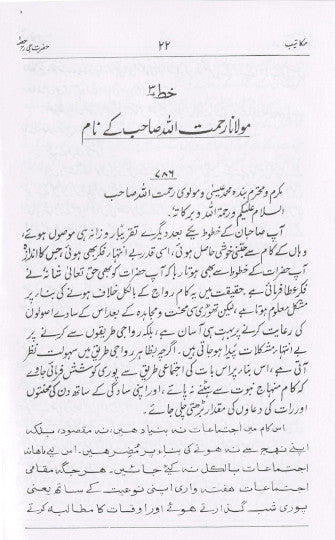 مکاتیب ۲۲ حضرت جی
خط ۳
مولانا رحمت اللہ صاحب کے نام
۷۸۶
مکرم و محترم بندہ محمد عیسیٰ و مولوی رحمت اللہ صاحب
السلام علیکم ورحمۃ اللہ وبرکاتہ،
آپ صاحبان کے خطوط یکے بعد دیگرے تقریبًا روزانہ ہی موصول ہوئے،
وہاں کے کام سے جتنی خوشی حاصل ہوئی، اسی قدر بے انتہا فکر بھی ہوئی جس کا اندازہ
آپ حضرات کے خطوط سے بھی ہوتا رہا کہ آپ حضرات کو بھی حق تعالیٰ شانہ نے
فکر عطا فرمائی ہے۔ حقیقت میں یہ کام رواج کے بالکل خلاف ہونے کی بناء پر
مشکل معلوم ہوتا ہے، لیکن تھوڑی سی محنت و مجاہدہ کے بعد اس کے سادے اصولوں
کی رعایت کرنے پر بہت ہی آسان ہے، بلکہ رواجی طریقوں سے کرنے پر
بے انتہا مشکلات پیدا ہو جاتی ہیں۔ اگرچہ بظاہر رواجی طریق میں سہولت نظر
آتی ہے، اس بنا پر اس بات کی اجتماعی طریق سے پوری کوشش فرمائی جاوے
کہ کام منہاج نبوت سے ہٹنے نہ پائے، اور اپنی سادگی کے ساتھ دن کی محنتوں
اور رات کی دعاوں کی مقدار بڑھتی چلی جائے۔
اس کام میں اجتماعات نہ بنیاد ہیں، نہ مقصود، بلکہ
اپنے نہج سے نہ ہونے کی بناء پر مضر ہیں۔ اس لیے ماہانہ
اجتماعات بالکل نہ کئے جائیں۔ ہر جگہ مقامی
اجتماعات ہفتہ واری اپنی نوعیت کے ساتھ یعنی
پوری شب گذارتے ہوئے اور اوقات کا مطالبہ کرتے